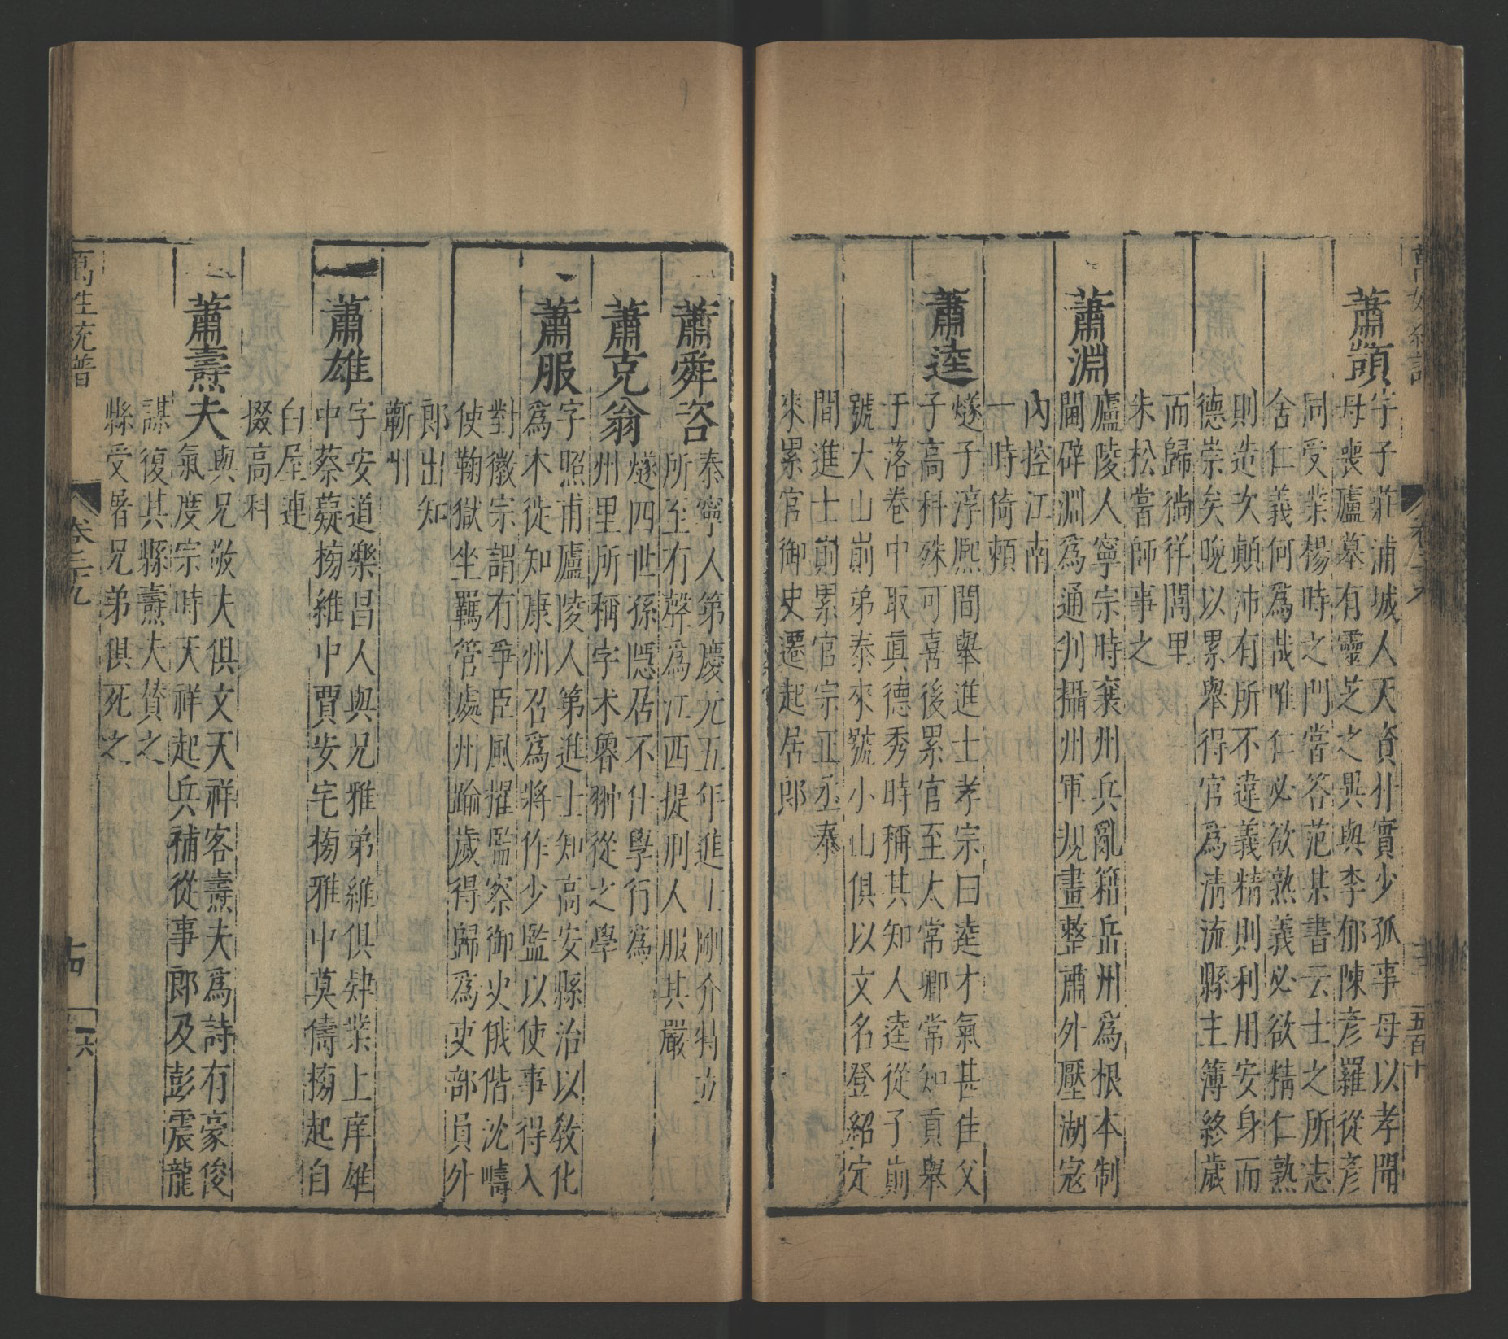 萬姓統譜
卷二十九
五百十
蕭顗
字子莊浦城人天資朴實少孤事母以孝聞
母喪廬墓有靈芝之異與李郁陳彥羅從彥
同受業楊時之門常答范某書云士之所志
舍仁義何爲哉唯仁必欲熟義必欲精仁熟
則造次顛沛有所不違義精則利用安身而
德崇矣晚以累舉得官爲清流縣主簿終歲
而歸徜徉閭里
朱松嘗師事之
蕭淵
廬陵人寧宗時襄州兵亂籍岳州爲根本制
閫辟淵爲通判攝州軍規畫整肅外壓湖寇
內控江南
一時倚賴
蕭逵
燧子淳熈間舉進士孝宗曰逵才氣甚佳父
子高科殊可喜後累官至太常卿常知貢舉
于落卷中取眞德秀時稱其知人逵從子崱
號大山崱弟泰來號小山俱以文名登紹定
間進士崱累官宗正丞泰
來累官御史遷起居郎
蕭舜咨
泰寧人第慶元五年進士剛介特立
所至有聲爲江西提刑人服其嚴
蕭克翁
燧四世孫隱居不仕學行爲
州里所稱字术魯翀從之學
蕭服
字照甫廬陵人第進士知高安縣治以敎化
爲本徙知康州召爲將作少監以使事得入
對徽宗謂有爭臣風擢監察御史俄偕沈疇
使鞫獄坐羈管處州踰歲得歸爲吏部員外
郎出知
蘄州
蕭雄
字安道樂昌人與兄雅弟維俱肄業上庠雄
中蔡薿榜維中賈安宅榜雅中莫儔榜起自
白屋連
掇高科
蕭燾夫
與兄敬夫俱文天祥客燾夫爲詩有豪俊
氣度宗時天祥起兵補從事郎及彭震龍
謀復其縣燾夫贊之
縣受屠兄弟俱死之
萬姓統譜
卷二十九
十四